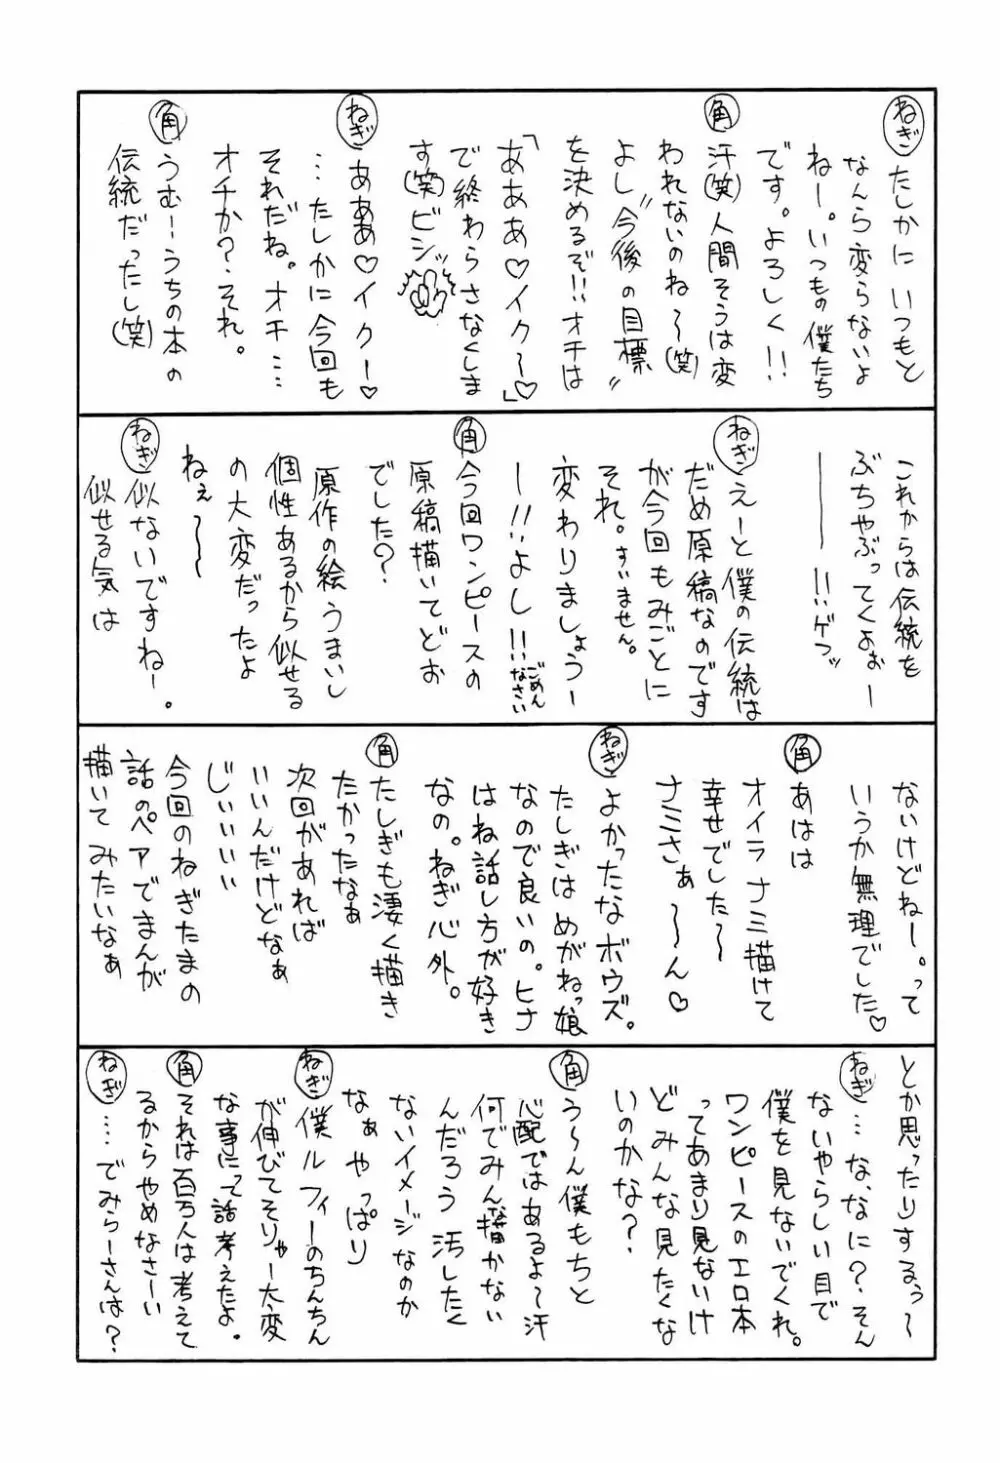 ねぎ たしかにいつもと
なんら変らないよ
ねー。いつもの僕たち
です。よろしく!!
角 汗(笑)人間そうは変
われないのね〜(笑)
よし“今後の目標”
を決めるぞ!!オチは
「あああ♡イク〜」♡
で終わらさなくしま
す(笑)ビシッ
ねぎ あああ♡イクー♡
…たしかに今回も
それだね。オチ……
オチか?それ。
角 うむーうちの本の
伝統だったし(笑)
これからは伝統を
ぶちゃぶってくよぉー
――――!!ゲフッ
ねぎ えーと僕の伝統は
だめ原稿なのです
が今回もみごとに
それ。すいません。
変わりましょうー
ー!!よし!!ごめんなさい
角 今回ワンピースの
原稿描いてどお
でした?
原作の絵うまいし
個性あるから似せる
の大変だったよ
ねぇ〜〜
ねぎ 似ないですねー。
似せる気は
ないけどねー。って
いうか無理でした♡
角 あはは
オイラナミ描けて
幸せでした〜
ナミさぁ〜〜ん♡
ねぎ よかったなボウズ。
たしぎはめがねっ娘
なので良いの。ヒナ
はね話し方が好き
なの。ねぎ心外。
角 たしぎも凄く描き
たかったなぁ
次回があれば
いいんだけどなぁ
じぃいいい
今回のねぎたまの
話のペアでまんが
描いてみたいなぁ
とか思ったりするぅ〜
ねぎ …な、なに?そん
ないやらしい目で
僕を見ないでくれ。
ワンピースのエロ本
ってあまり見ないけ
どみんな見たくな
いのかな?
角 う〜ん僕もちと
心配ではあるよ〜汗
何でみんな描かない
んだろう 汚したく
ないイメージなのか
なぁ やっぱり
ねぎ 僕ルフィーのちんちん
が伸びてそりゃー大変
な事にって話考えたよ。
角 それは百万人は考えて
るからやめなさーい
ねぎ ……でみらーさんは?